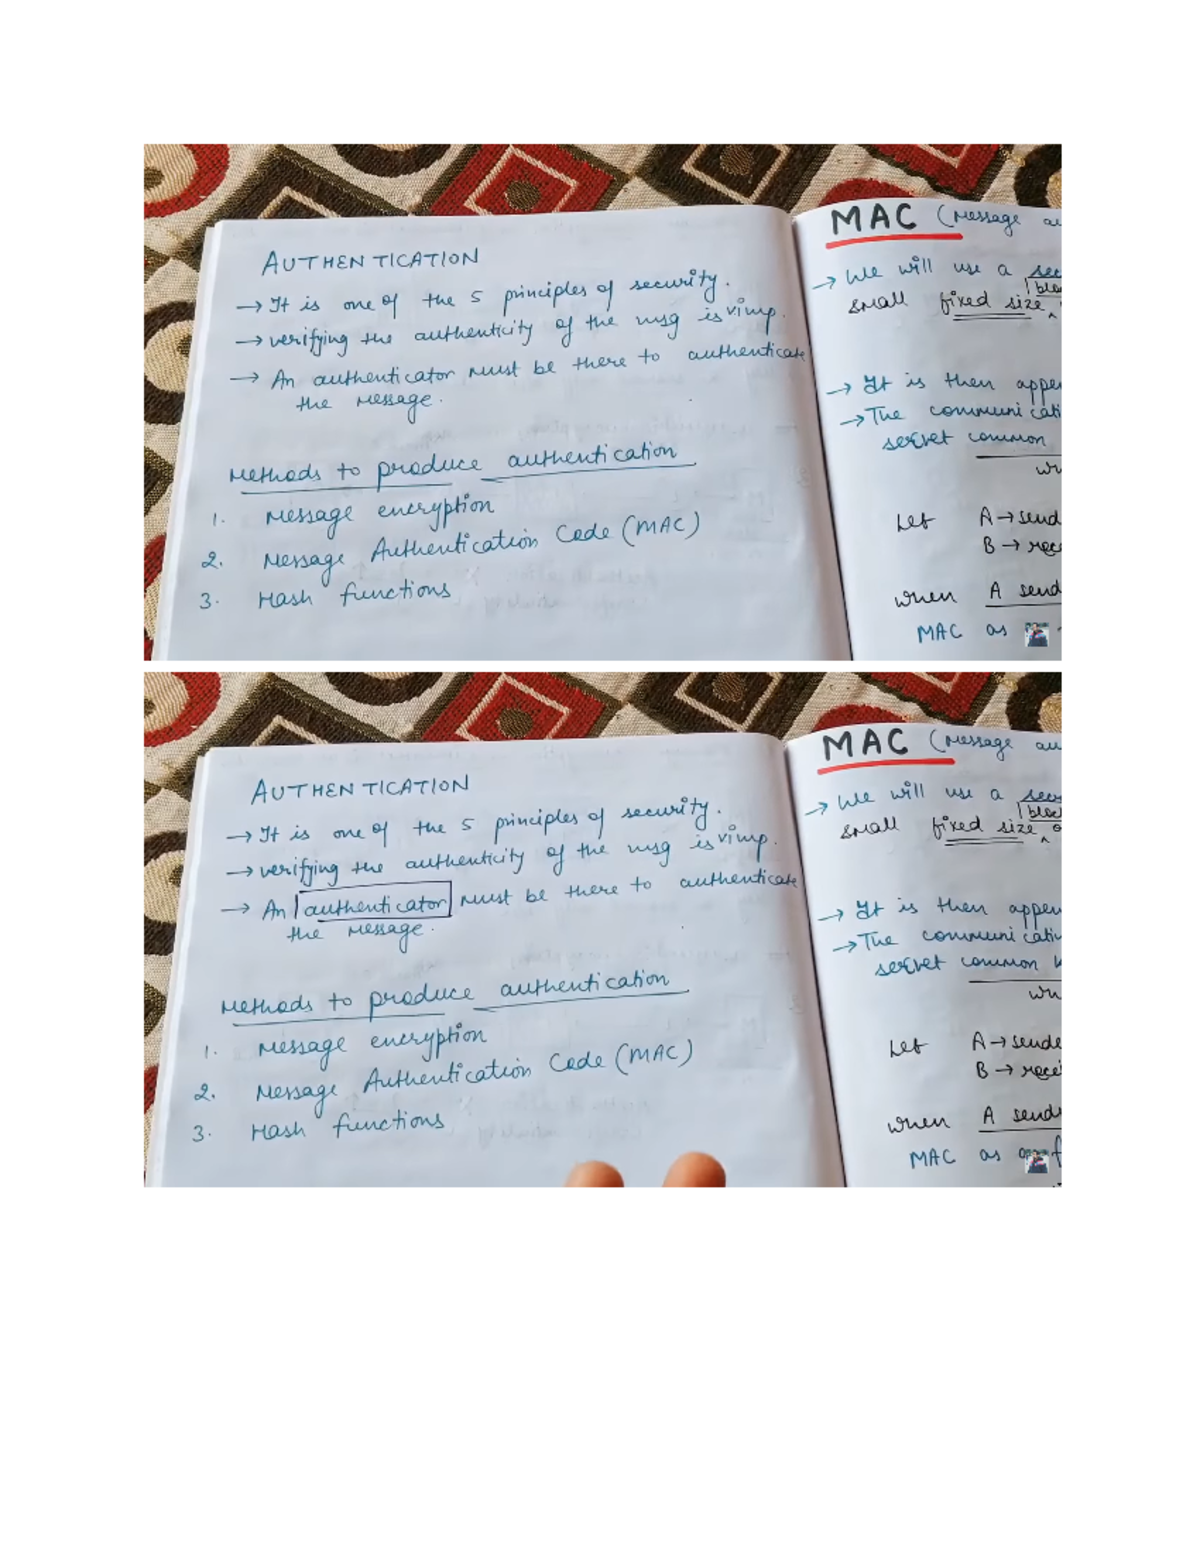 AUTHENTICATION
→ It is one of the 5 principles of security.
→ verifying the authenticity of the msg is vimp.
→ An authenticator must be there to authenticate
the message.
Methods to produce authentication
1. Message encryption
2. Message Authentication Code (MAC)
3. Hash functions
MAC (Message au
→ We will use a sec
small fixed size
→ It is then appen
→ The communicati
secret common
Let A → send
B → rece
when A send
MAC as
AUTHENTICATION
→ It is one of the 5 principles of security.
→ verifying the authenticity of the msg is vimp.
→ An authenticator must be there to authenticate
the message.
Methods to produce authentication
1. Message encryption
2. Message Authentication Code (MAC)
3. Hash functions
MAC (Message au
→ We will use a sec
small fixed size
→ It is then appen
→ The communicatio
secret common
Let A → sende
B → recei
when A sends
MAC as